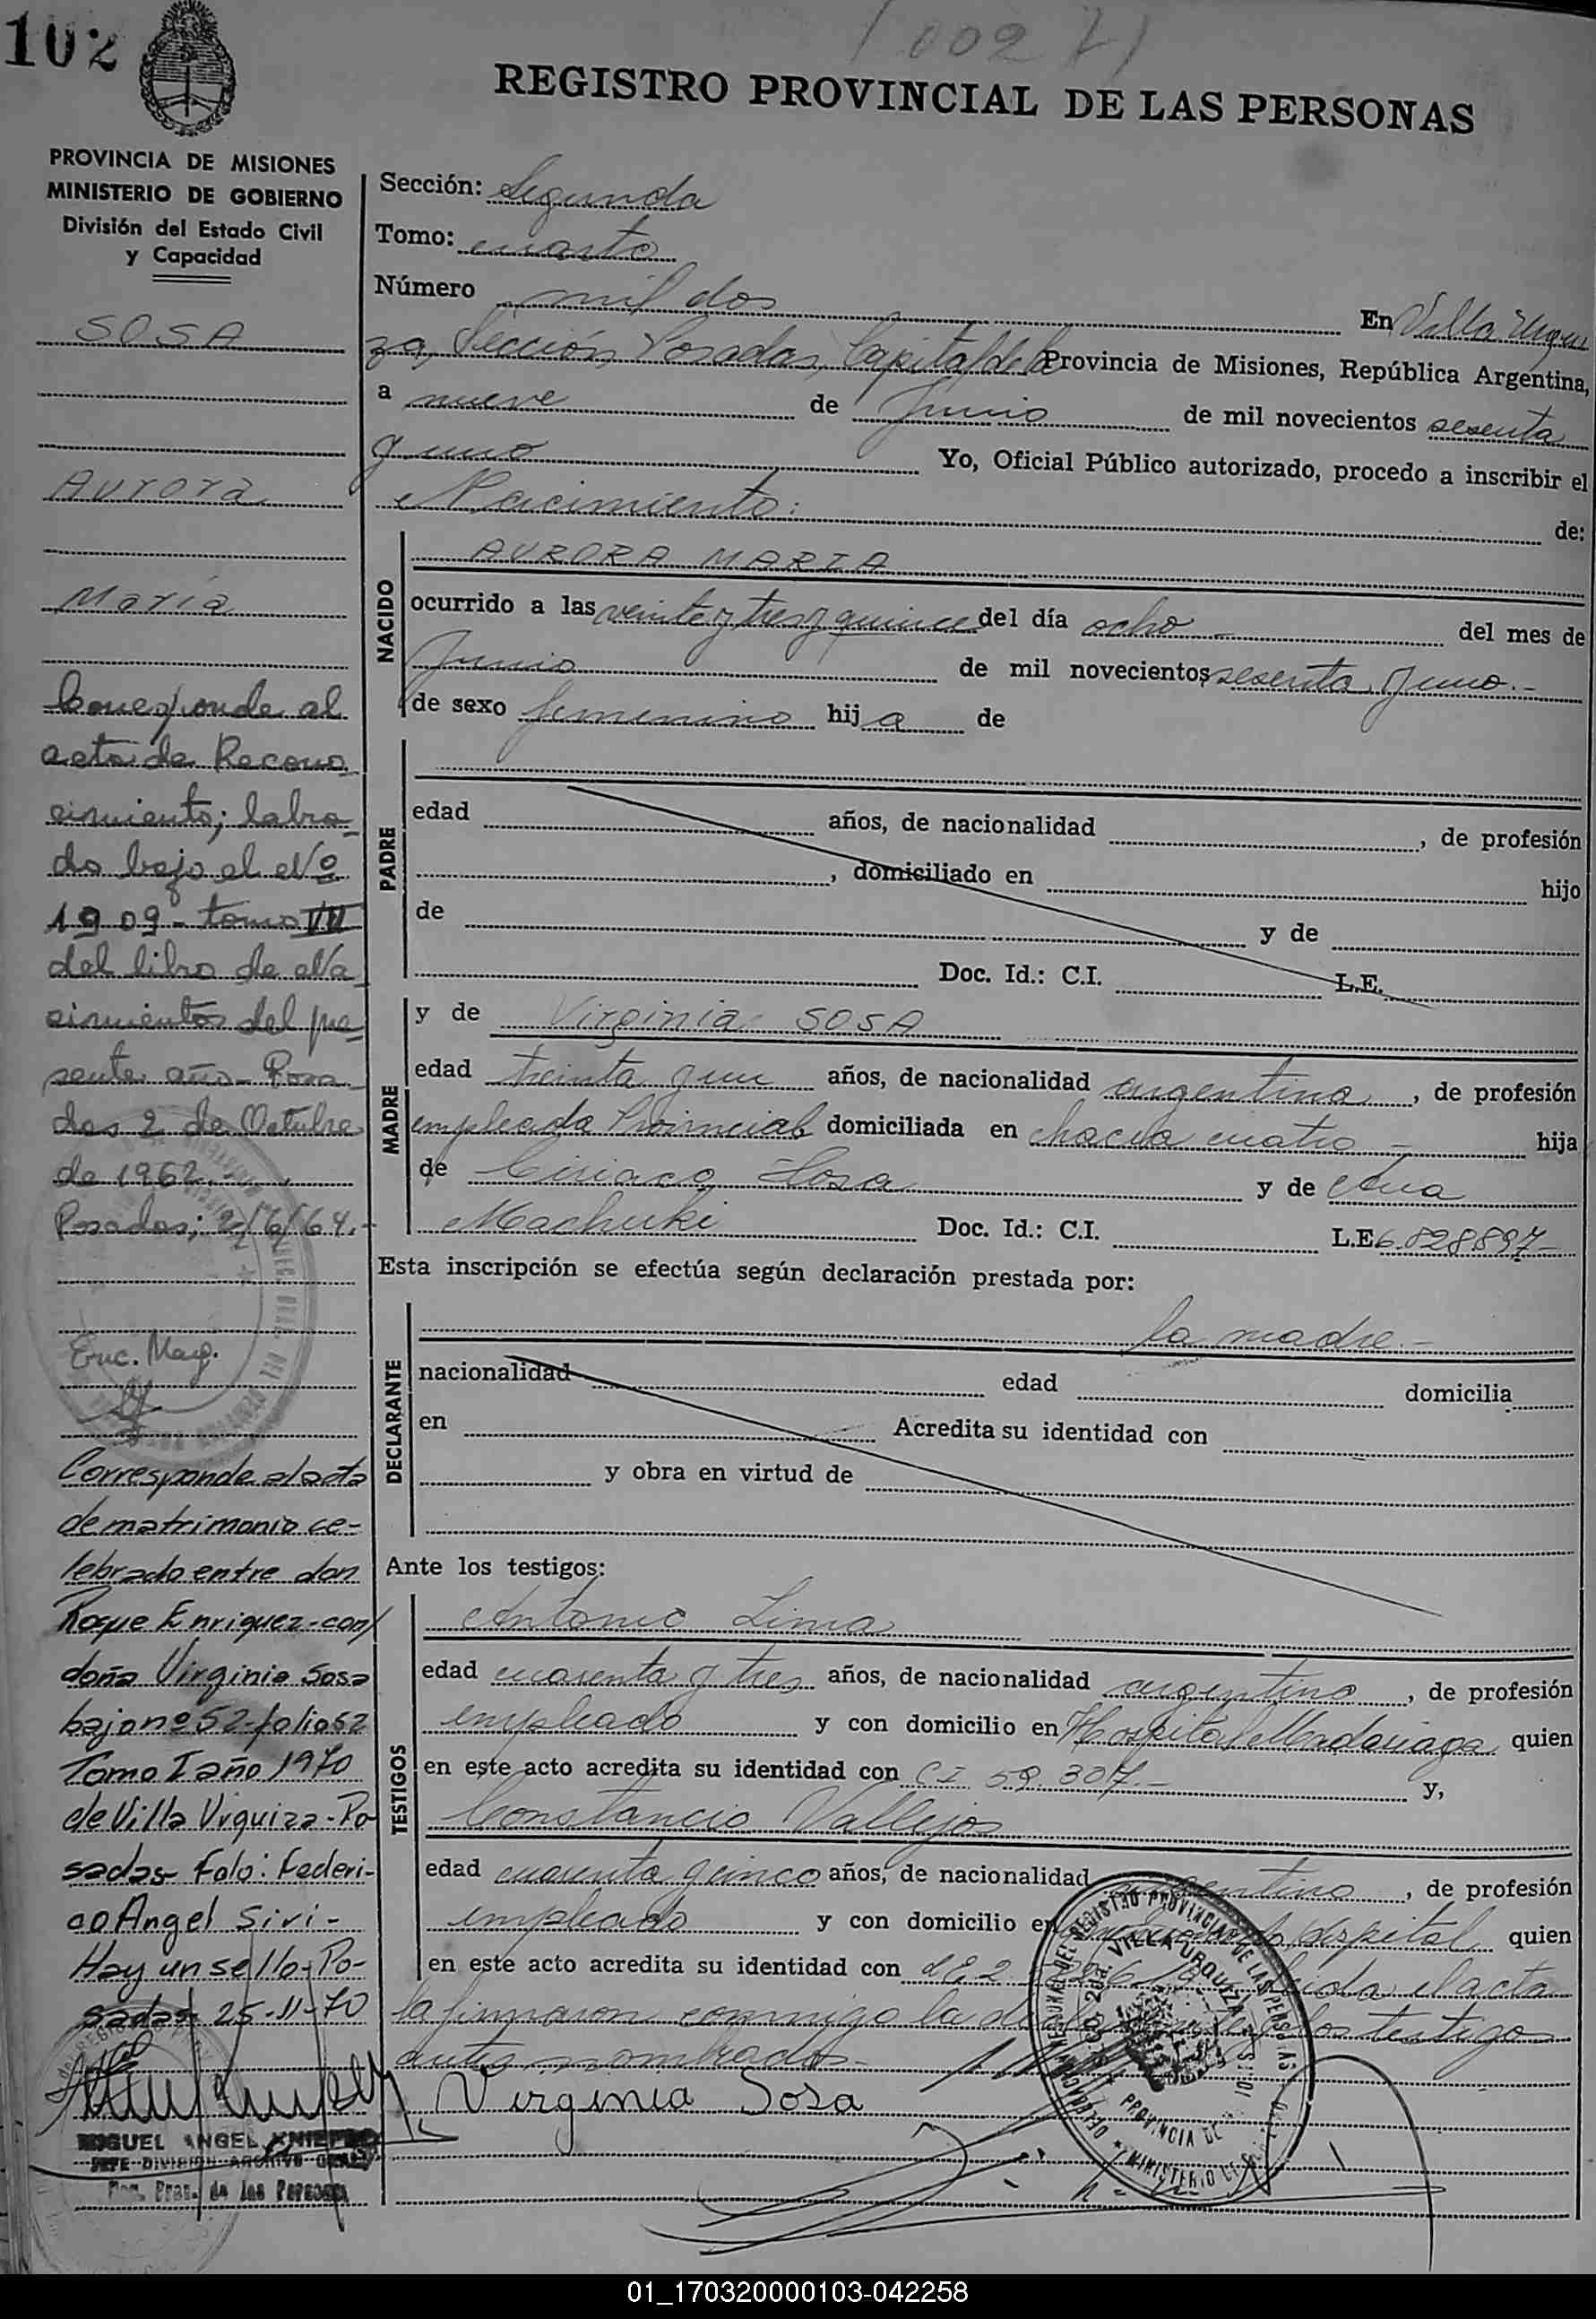 102
(00271)
REGISTRO PROVINCIAL DE LAS PERSONAS
PROVINCIA DE MISIONES
MINISTERIO DE GOBIERNO
División del Estado Civil
y Capacidad
SOSA
Aurora
María
Corresponde al
acta de Recono
cimiento; labra-
do bajo el Nº
1909 - tomo VII
del libro de Na
cimientos del pre
sente año - Posa
das 2 de Octubre
de 1962.
Posadas; 2/6/64.-
Enc. Marg.
Corresponde al acta
de matrimonio ce-
lebrado entre don
Roque Enriquez-con
doña Virginia Sosa
bajo nº 52-folio 52
Tomo I año 1970
de Villa Urquiza-Po
sadas Fdo: Federi-
co Angel Siri-
Hay un sello-Po-
sadas 25-11-70
MIGUEL ANGEL
JEFE DIVISION ARCHIVO GRAL
Reg. Prov. de las Personas
Sección: Segunda
Tomo: cuarto
Número mil dos En Villa Urqui
za, Sección, Posadas, Capital de la Provincia de Misiones, República Argentina,
a nueve de Junio de mil novecientos sesenta
y uno Yo, Oficial Público autorizado, procedo a inscribir el
Nacimiento: de:
NACIDO
AURORA MARIA
ocurrido a las veinte y tres y quince del día ocho - del mes de
Junio de mil novecientos sesenta y uno.-
de sexo femenino hija de
PADRE
edad años, de nacionalidad , de profesión
, domiciliado en hijo
de y de
Doc. Id.: C.I. L.E.
MADRE
y de Virginia SOSA
edad treinta y un años, de nacionalidad argentina, de profesión
empleada Provincial domiciliada en chacra cuatro - hija
de Ciriaco Sosa y de Ana
Machuki Doc. Id.: C.I. L.E. 6.828.897-
Esta inscripción se efectúa según declaración prestada por:
DECLARANTE
la madre.-
nacionalidad edad domicilia
en Acredita su identidad con
y obra en virtud de
Ante los testigos:
TESTIGOS
Antonio Lima
edad cuarenta y tres años, de nacionalidad argentino, de profesión
empleado y con domicilio en Hospital Madariaga quien
en este acto acredita su identidad con CI 59.307.- y,
Constancio Vallejos
edad cuarenta y cinco años, de nacionalidad argentino, de profesión
empleado y con domicilio en Hospital quien
en este acto acredita su identidad con L.E. 2 leida el acta
la firmaron conmigo la los testigo
antes nombrados.-
Virginia Sosa
VILLA URQUIZA
01_170320000103-042258